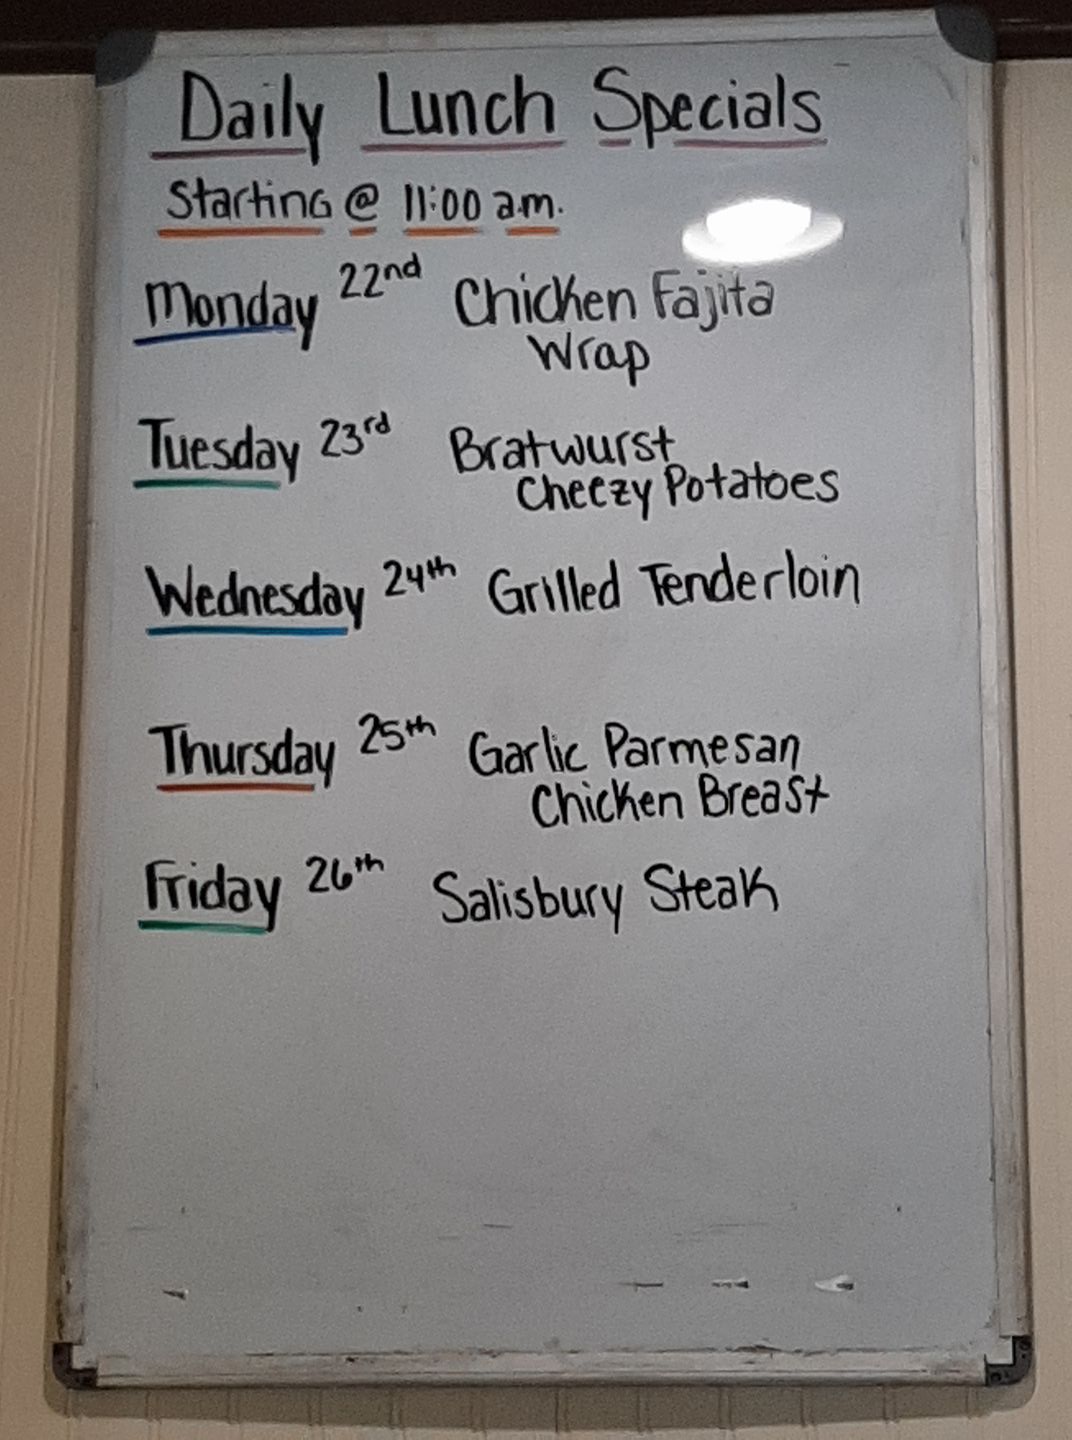 Daily Lunch Specials
Starting @ 11:00 a.m.
Monday 22nd Chicken Fajita
Wrap
Tuesday 23rd Bratwurst
Cheezy Potatoes
Wednesday 24th Grilled Tenderloin
Thursday 25th Garlic Parmesan
Chicken Breast
Friday 26th Salisbury Steak